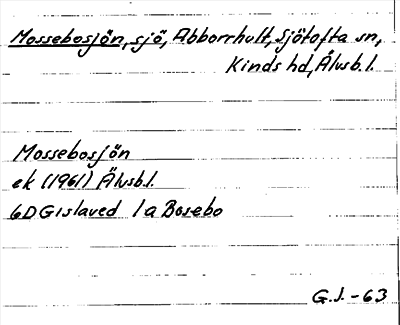 Mossebosjön, sjö, Abborrhult, Sjötofta sn,
Kinds hd, Älvsb. l.
Mossebosjön
ek (1961) Älvsb. l.
6D Gislaved 1a Bosebo
G.J. -63